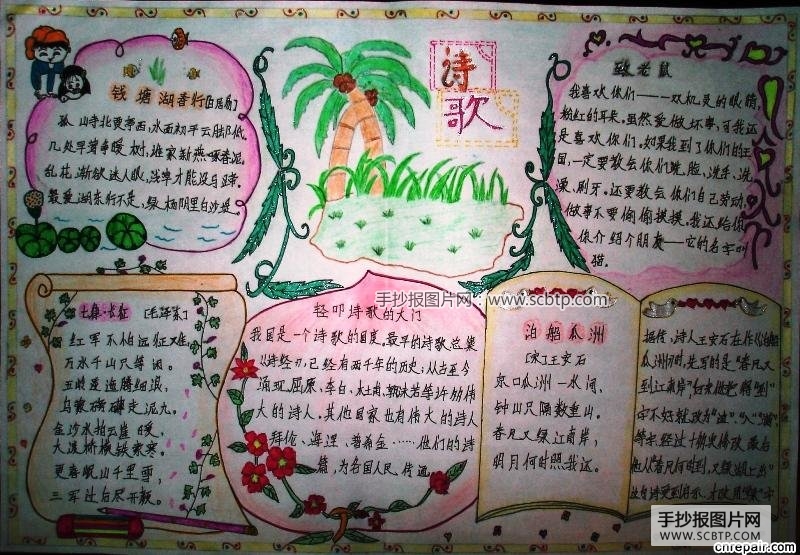 诗
歌
钱塘湖春行[白居易]
孤山寺北贾亭西,水面初平云脚低。
几处早莺争暖树,谁家新燕啄春泥。
乱花渐欲迷人眼,浅草才能没马蹄。
最爱湖东行不足,绿杨阴里白沙堤。
致老鼠
我喜欢你们——双机灵的眼睛,
粉红的耳朵。虽然爱做坏事,可我还
是喜欢你们。如果我到了你们的王
国,一定要教会你们洗脸、洗手、洗
澡、刷牙。还要教会你们自己劳动,
做事不要偷偷摸摸。我还给你
你介绍个朋友——它的名字叫
猫。
七律·长征 [毛泽东]
红军不怕远征难,
万水千山只等闲。
五岭逶迤腾细浪,
乌蒙磅礴走泥丸。
金沙水拍云崖暖,
大渡桥横铁索寒。
更喜岷山千里雪,
三军过后尽开颜。
轻叩诗歌的大门
我国是一个诗歌的国度,最早的诗歌总集
《诗经》,已经有两千年的历史;从古至今
涌现屈原、李白、杜甫、郭沫若等许多伟
大的诗人。其他国家也有伟大的诗人
拜伦、海涅、普希金……他们的诗
篇,为各国人民传诵
泊船瓜洲
[宋]王安石
京口瓜洲一水间,
钟山只隔数重山。
春风又绿江南岸,
明月何时照我还。
据传,诗人王安石在作《泊船
瓜洲》时,先写的是“春风又
到江南岸”
字不好,就改为“过”、“入”、“满”
等字,经过十
手抄报图片网:www.scbtp.com
手抄报图片网
WWW.SCBTP.COM
cnrepair.com